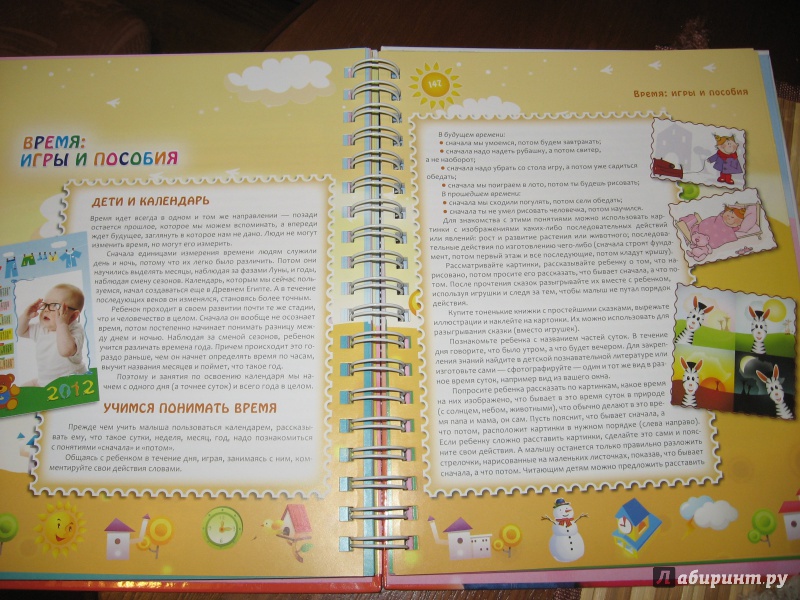 ВРЕМЯ:
ИГРЫ И ПОСОБИЯ
ДЕТИ И КАЛЕНДАРЬ
Время идет всегда в одном и том же направлении — позади
остается прошлое, которое мы можем вспоминать, а впереди
ждет будущее, заглянуть в которое нам не дано. Люди не могут
изменить время, но могут его измерить.
Сначала единицами измерения времени людям служили
день и ночь, потому что их легко было различить. Потом они
научились выделять месяцы, наблюдая за фазами Луны, и годы,
наблюдая смену сезонов. Календарь, которым мы сейчас поль-
зуемся, начал создаваться еще в Древнем Египте. А в течение
последующих веков он изменялся, становясь более точным.
Ребенок проходит в своем развитии почти те же стадии,
что и человечество в целом. Сначала он вообще не осознает
время, потом постепенно начинает понимать разницу меж-
ду днем и ночью. Наблюдая за сменой сезонов, ребенок
учится различать времена года. Причем происходит это го-
раздо раньше, чем он начнет определять время по часам,
выучит названия месяцев и поймет, что такое год.
Поэтому и занятия по освоению календаря мы на-
чнем с одного дня (а точнее суток) и всего года в целом.
2012
УЧИМСЯ ПОНИМАТЬ ВРЕМЯ
Прежде чем учить малыша пользоваться календарем, расскажи-
ему, что такое сутки, неделя, месяц, год, надо познакомить
с понятиями «сначала» и «потом».
Общаясь с ребенком в течение дня, играя, занимаясь с ним, ком-
ментируйте свои действия словами.
147
Время: игры и пособия
В будущем времени:
● сначала мы умоемся, потом будем завтракать;
● сначала надо надеть рубашку, а потом свитер,
а не наоборот;
● сначала надо убрать со стола игру, а потом уже садиться
обедать;
● сначала мы поиграем в лото, потом ты будешь рисовать;
В прошедшем времени:
● сначала мы сходили погулять, потом сели обедать;
● сначала ты не умел рисовать человечка, потом научился.
Для знакомства с этими понятиями можно использовать кар-
тинки с изображениями каких-либо последовательных действий
или явлений: рост и развитие растения или животного; последова-
тельные действия по изготовлению чего-либо (сначала строят фунда-
мент, потом первый этаж и все последующие, потом кладут крышу).
Рассматривайте картинки, рассказывайте ребенку о том, что на-
рисовано, потом просите его рассказать, что бывает сначала, а что по-
том. После прочтения сказок разыгрывайте их вместе с ребенком,
используя игрушки и следя за тем, чтобы малыш не путал порядок
действия.
Купите тоненькие книжки с простейшими сказками, вырежьте
иллюстрации и наклейте на картонки. Их можно использовать для
разыгрывания сказки (вместо игрушек).
Познакомьте ребенка с названием частей суток. В течение
дня говорите, что было утром, а что будет вечером. Для закреп-
ления знаний найдите в детской познавательной литературе или
изготовьте сами — сфотографируйте — один и тот же вид в раз-
ное время суток, например вид из вашего окна.
Попросите ребенка рассказать по картинкам, какое время
на них изображено, что бывает в это время суток в природе
(с солнцем, небом, животными), что обычно делают в это вре-
мя папа и мама, он сам. Пусть пояснит, что бывает сначала, а
что потом, расположит картинки в нужном порядке (слева направо).
Если ребенку сложно расставить картинки, сделайте это сами и пояс-
ните свои действия. А малышу останется только правильно разложить
стрелочки, нарисованные на маленьких листочках, показав, что бывает
сначала, а что потом. Читающим детям можно предложить расставить
Лабиринт.ру